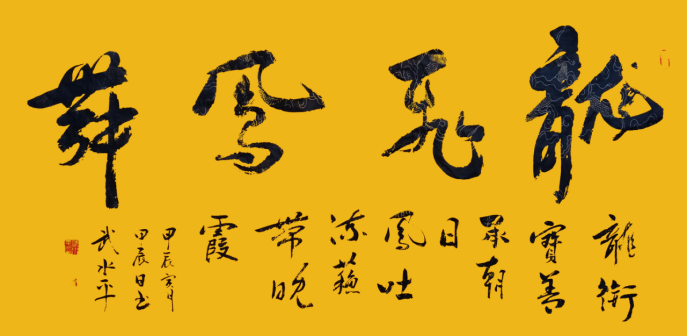 龍飛鳳舞
龍銜
寶蓋
承朝
日
鳳吐
流蘇
帶晚
霞
甲辰寅月
甲辰日书
武水平